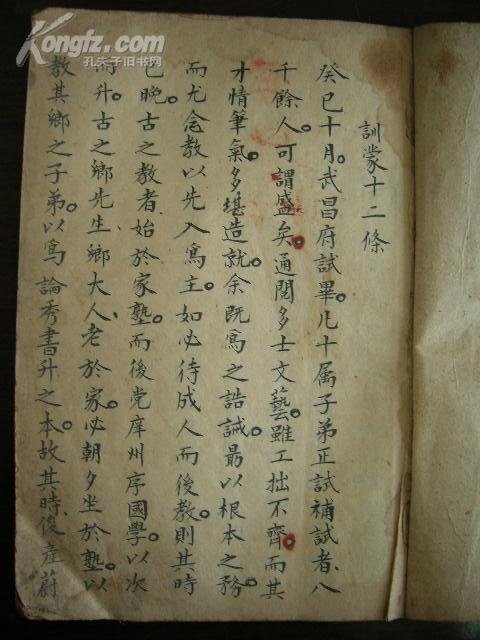 Kongfz.com
孔夫子旧书网
訓蒙十二條
癸巳十月。武昌府試畢。凡十属子弟正試補試者、八
千餘人。可謂盛矣。通閱多士文藝。雖工拙不齊。而其
才情筆氣。多堪造就。余既爲之誥誡。最以根本之務。
而尤念教以先入爲主。如必待成人而後教。則其時
已晚。古之教者、始於家塾。而後党庠州序國學。以次
而升。古之鄉先生、鄉大人、老於家。必朝夕坐於塾。以
教其鄉之子弟。以爲論秀書升之本。故其時後産蔚